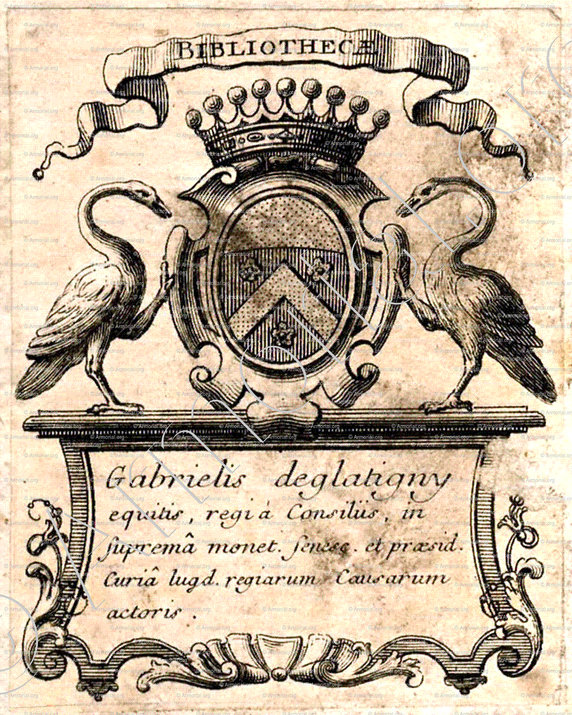 BIBLIOTHECÆ
Gabrielis deglatigny
equitis, regi á Consiliis, in
supremâ monet. senesc. et præsid.
Curiâ lugd. regiarum Causarum
actoris.